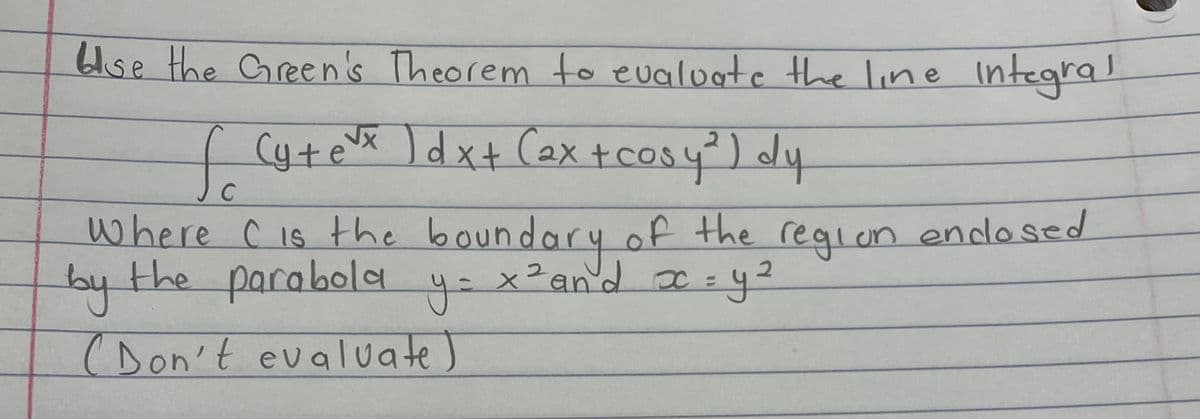 Use the Green's Theorem to evaluate the line integral
∫_C (y+e^√x) dx + (2x + cos y²) dy
Where C is the boundary of the region enclosed
by the parabola y = x² and x = y²
(Don't evaluate)